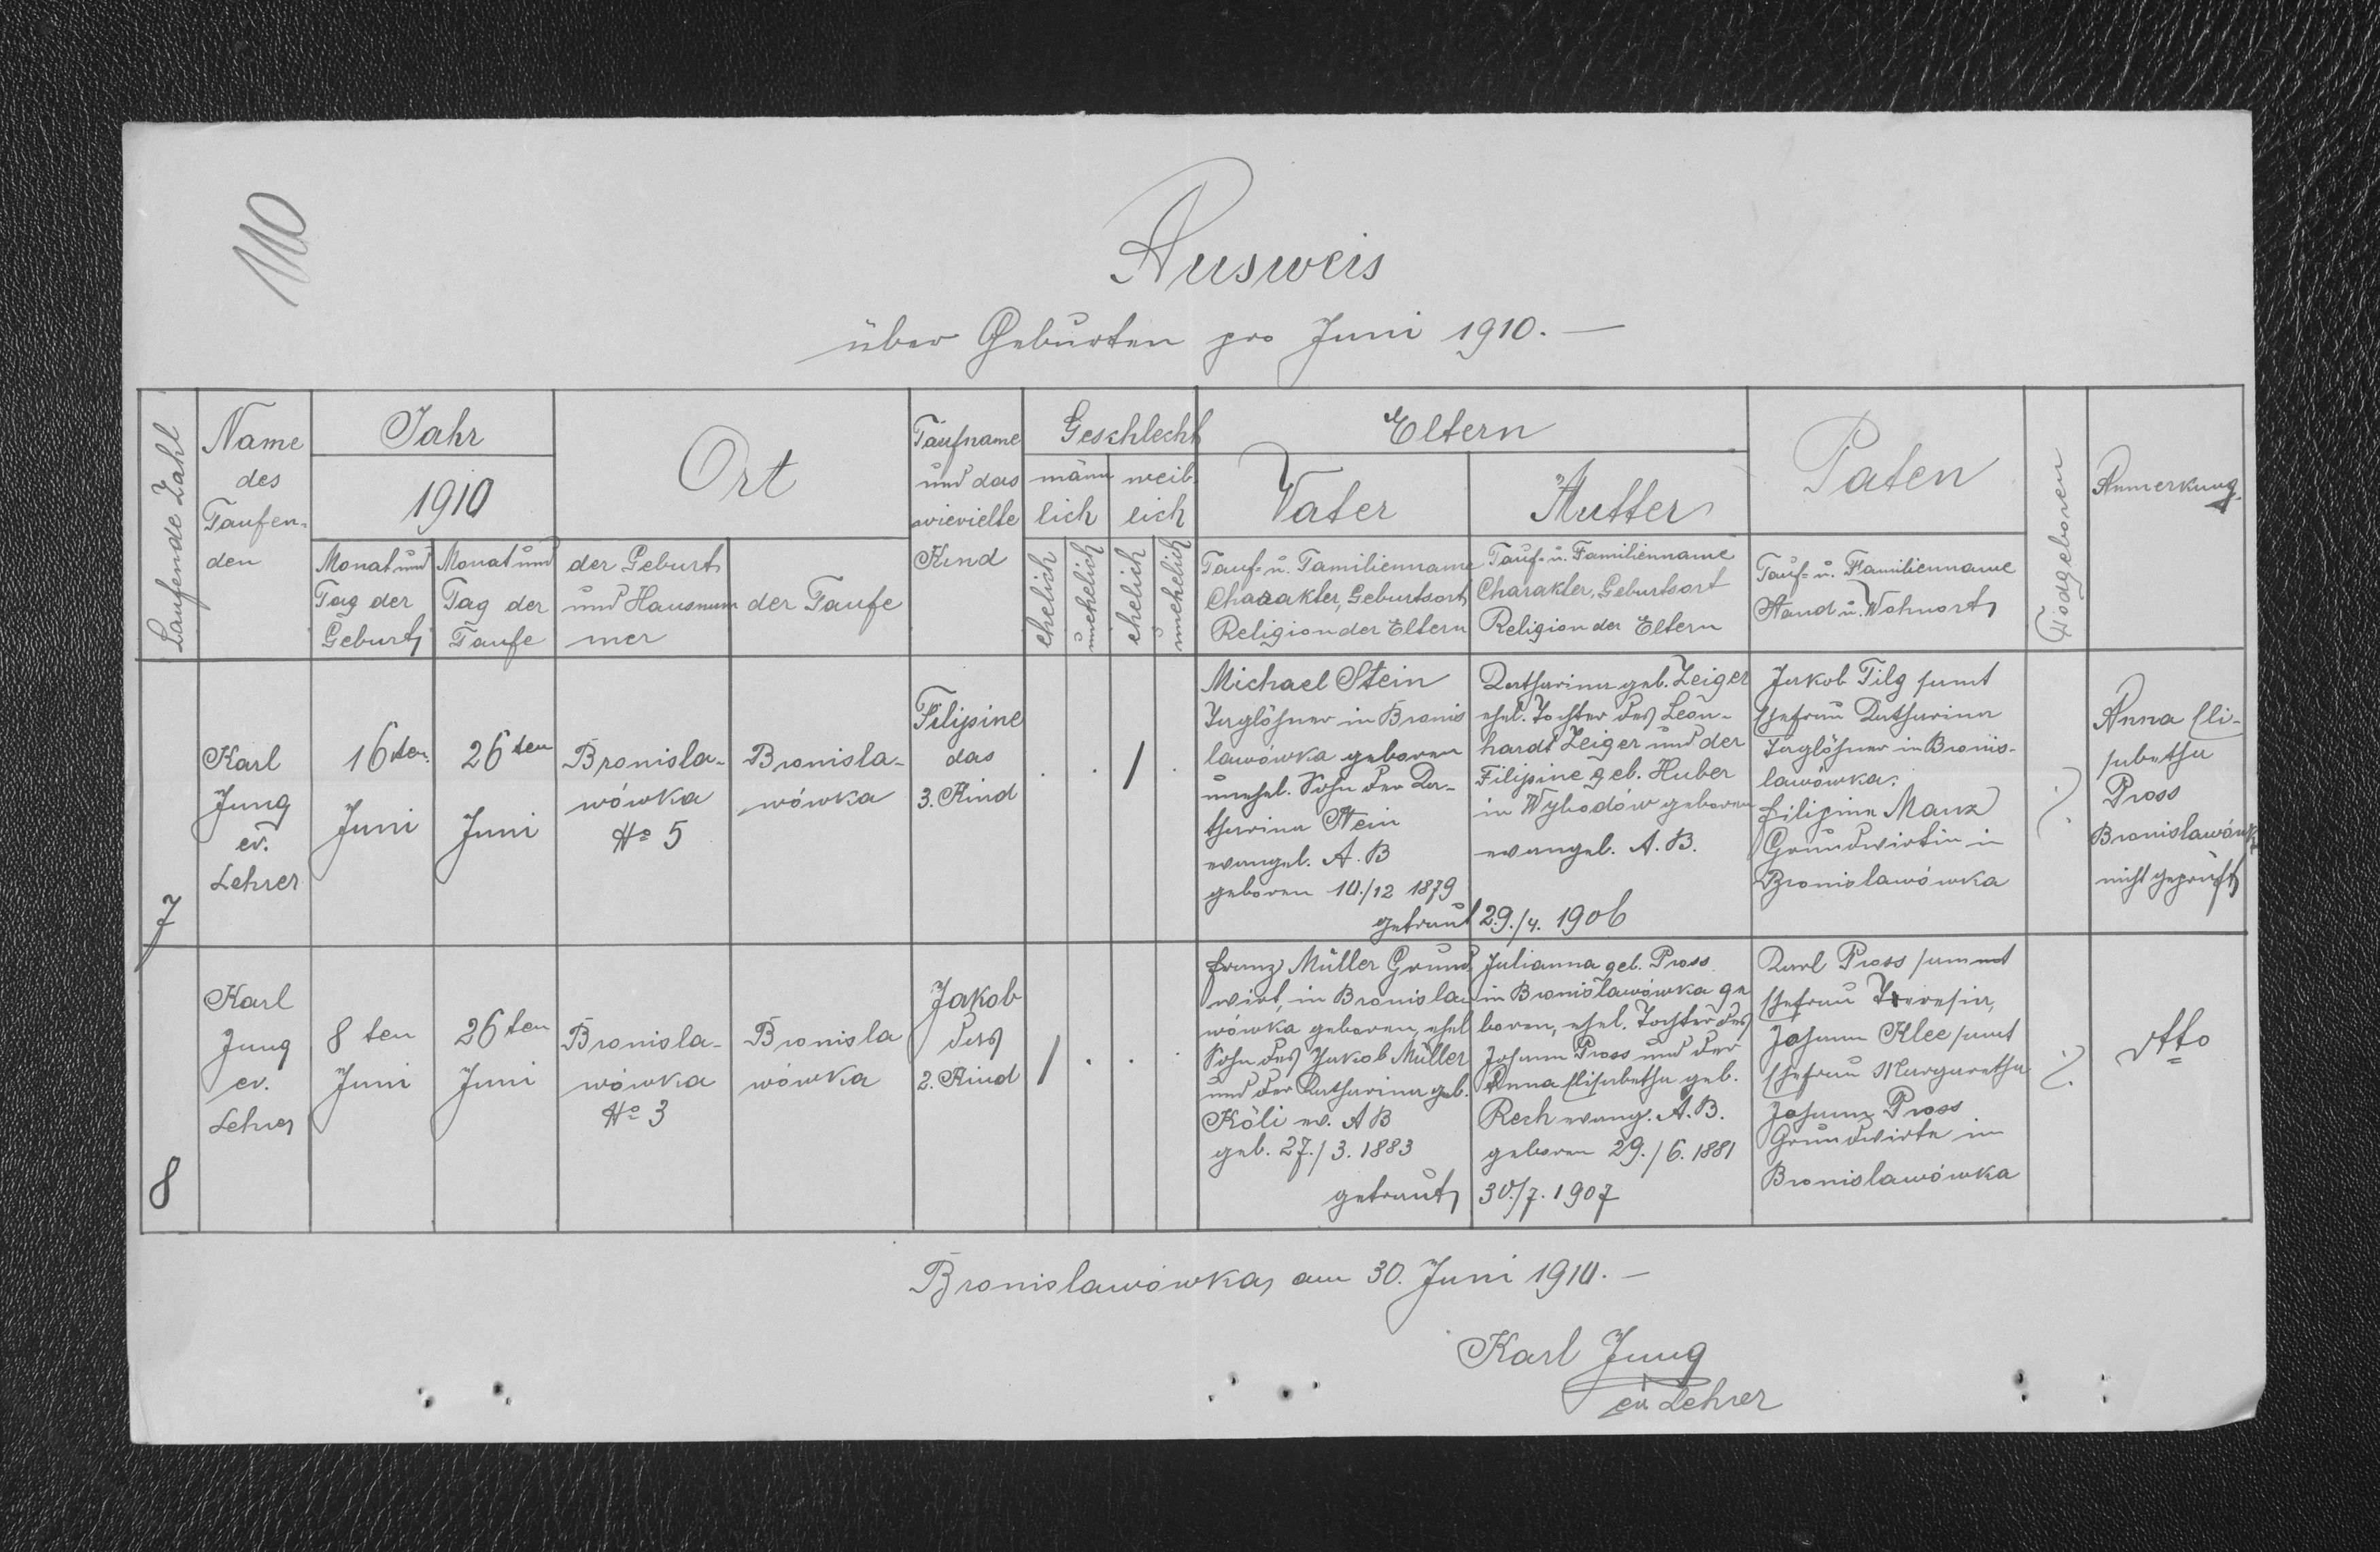 110
Ausweis
über Geburten pro Juni 1910. —
Laufende Zahl
Name
des
Taufen-
den
Jahr
1910
Monat und
Tag der
Geburt
Monat und
Tag der
Taufe
Ort
der Geburt
und Hausnum
mer
der Taufe
Taufname
und das
wievielte
Kind
Geschlecht
männ
lich
weib.
lich
ehelich
unehelich
ehelich
unehelich
Eltern
Vater
Tauf- u. Familienname
Charakter, Geburtsort
Religion der Eltern
Mutter
Tauf- u. Familienname
Charakter, Geburtsort
Religion der Eltern
Paten
Tauf- u. Familienname
Stand u. Wohnort
Todgeboren
Anmerkung.
7
Karl
Jung
ev.
Lehrer
16ten
Juni
26ten
Juni
Bronisla-
wówka
No 5
Bronisla-
wówka
Filipine
das
3. Kind
. . 1 .
Michael Stein
Taglöhner in Bronis
lawówka geboren
unehel. Sohn der Ka-
tharina Stein
evangel. A. B
geboren 10./12 1879
getraut 29./4. 1906
Katharina geb. Zeiger
ehel. Tochter des Leon-
hardt Zeiger und der
Filipine geb. Huber
in Wybodów geboren
evangel. A. B.
Jakob Filg samt
Ehefrau Katharina
Taglöhner in Bronis-
lawówka.
Filipine Manz
Grundwirtin in
Bronislawówka
Anna Eli-
sabetha
Pross
Bronislawówka
nicht geprüft
8
Karl
Jung
ev.
Lehrer
8 ten
Juni
26 ten
Juni
Bronisla-
wówka
No 3
Bronisla
wówka
Jakob
das
2. Kind
1 . . .
Franz Müller Grund
wirt, in Bronisla
wówka geboren, ehel
Sohn des Jakob Müller
und der Katharina geb.
Köli ev. A B
geb. 27./3. 1883
getraut 30./7. 1907
Julianna geb. Pross
in Bronislawówka ge
boren, ehel. Tochter des
Johann Pross und der
Anna Elisabetha geb.
Rech evang. A. B.
geboren 29./6. 1881
Karl Pross sammt
Ehefrau Theresia,
Johann Klee samt
Ehefrau Margaretha
Johann Pross
Grundwirte in
Bronislawówka
dtto
Bronislawówka, am 30. Juni 1910. —
Karl Jung
ev. Lehrer